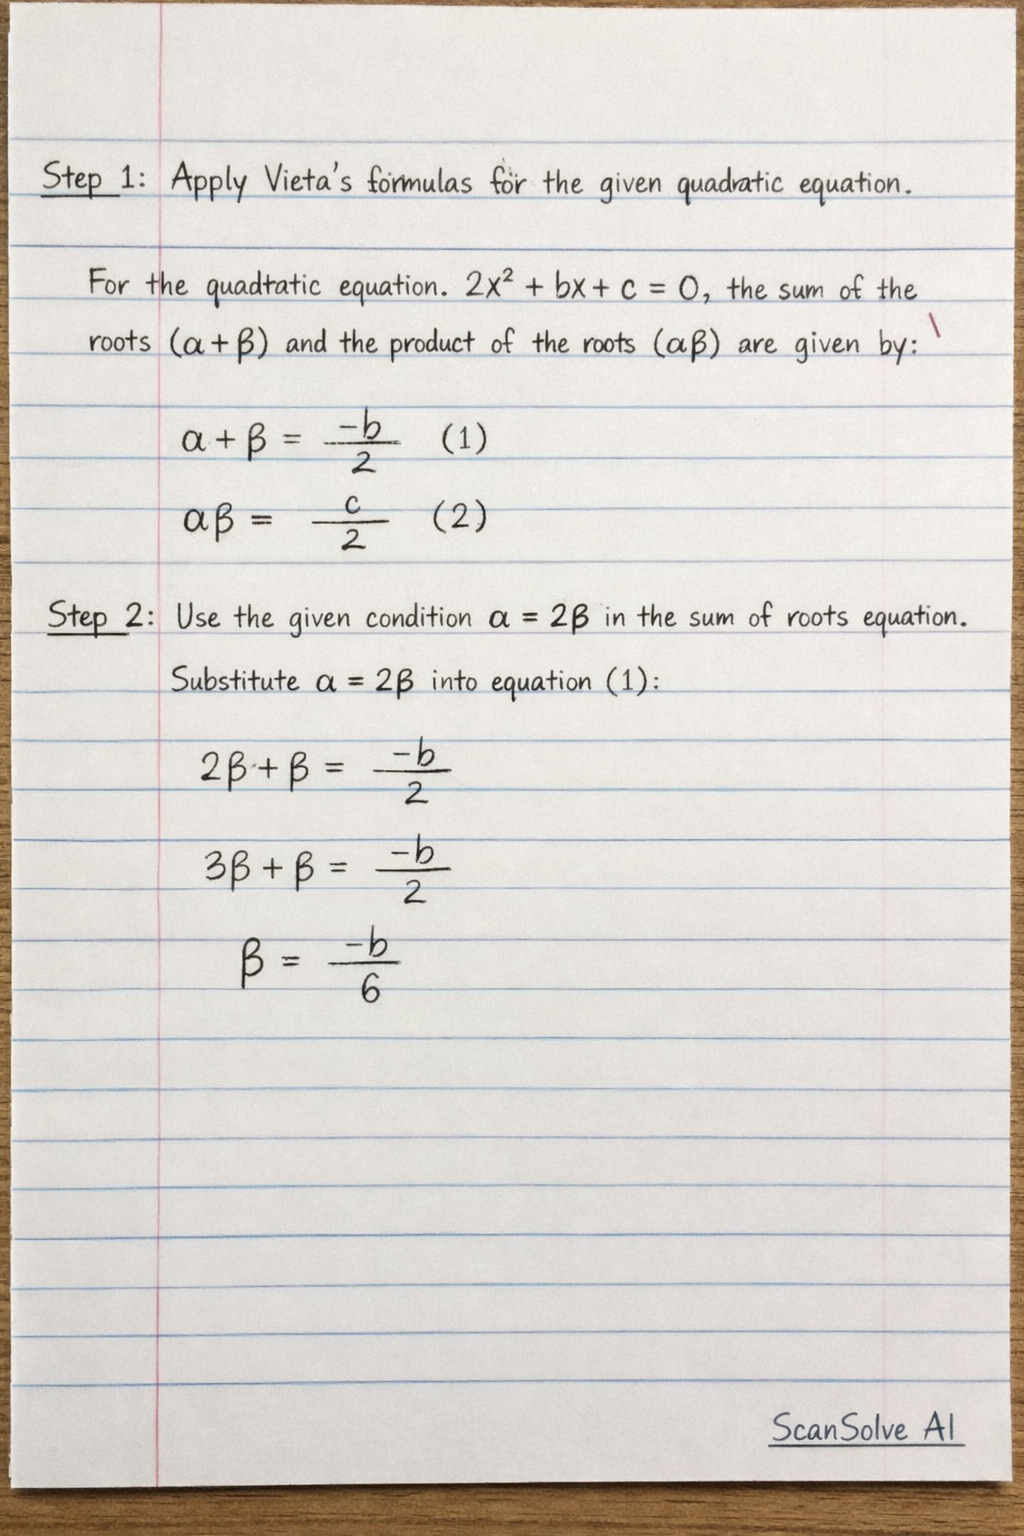 Step 1: Apply Vieta's formulas for the given quadratic equation.
For the quadtatic equation. 2x² + bx + c = 0, the sum of the
roots (α + β) and the product of the roots (αβ) are given by:
α + β = -b/2 (1)
αβ = c/2 (2)
Step 2: Use the given condition α = 2β in the sum of roots equation.
Substitute α = 2β into equation (1):
2β + β = -b/2
3β + β = -b/2
β = -b/6
ScanSolve AI